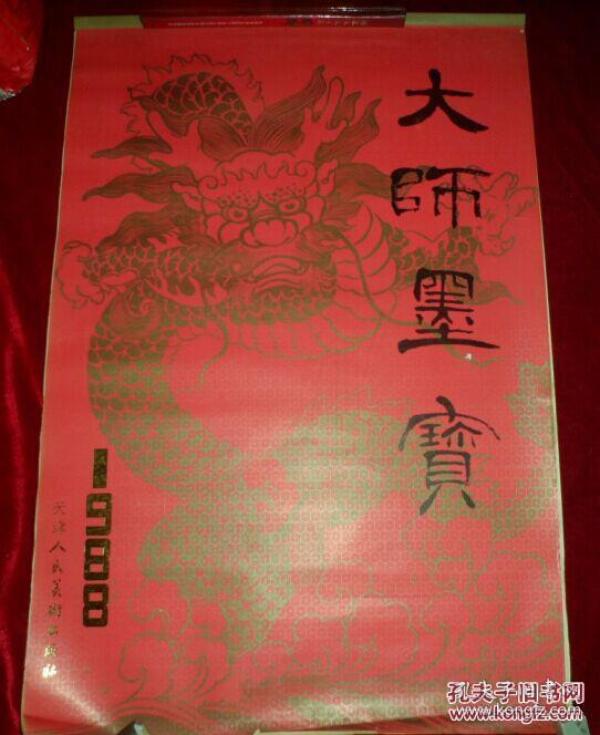 大師墨寶
1988
天津人民美術出版社
孔夫子旧书网
www.kongfz.com